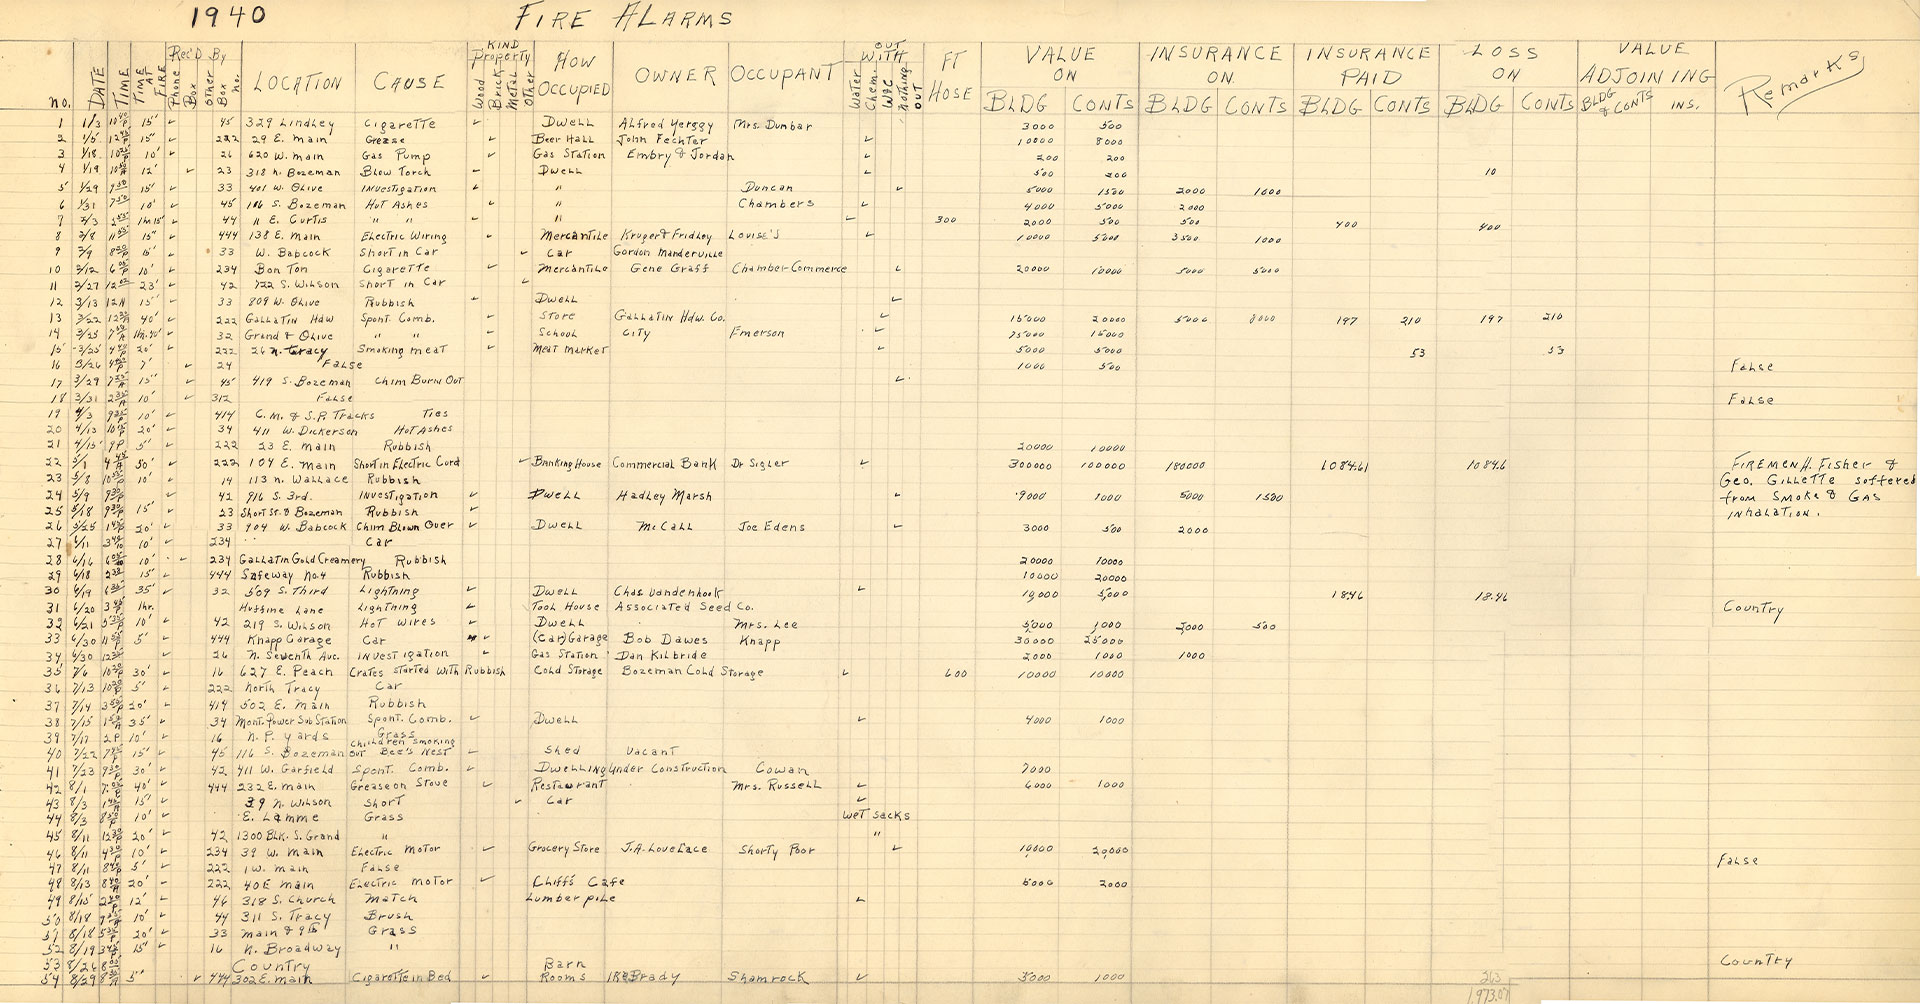 1940 FIRE ALARMS
no. DATE TIME TIME AT FIRE Rec'D By Phone Box Other Box no. LOCATION CAUSE KIND Property Wood Brick Metal Other HOW OCCUPIED OWNER OCCUPANT OUT WITH Water Chem. Nothing OUT FT HOSE VALUE ON BLDG CONTS INSURANCE ON BLDG CONTS INSURANCE PAID BLDG CONTS LOSS ON BLDG CONTS VALUE ADJOINING BLDG & CONTS INS. Remarks
1 1/3 15' 45 329 Lindley Cigarette Dwell Alfred Yerggy Mrs. Dunbar 3000 500
2 1/5 15" 222 29 E. Main Grease Beer Hall John Fechter 10000 8000
3 1/18 10' 26 620 W. Main Gas Pump Gas Station Embry & Jordan 200 200
4 1/19 12' 23 318 N. Bozeman Blow Torch Dwell 500 200 10
5 1/29 15' 33 401 W. Olive Investigation " Duncan 5000 1500 2000 1600
6 1/31 10' 45 116 S. Bozeman Hot Ashes " Chambers 4000 5000 2000
7 2/3 1hr 15' 44 11 E. Curtis " " " 300 2000 500 500 400 400
8 2/8 15" 444 138 E. Main Electric Wiring Mercantile Kruger & Fridley Louise's 10000 5000 3500 1000
9 2/9 15' 33 W. Babcock Short in Car Car Gordon Manderville
10 2/12 10' 234 Bon Ton Cigarette Mercantile Gene Graff Chamber Commerce 20000 10000 5000 5000
11 2/27 23' 42 722 S. Wilson Short in Car
12 3/13 15" 33 809 W. Olive Rubbish Dwell
13 3/22 40' 222 Gallatin Hdw Spont. Comb. Store Gallatin Hdw. Co. 15000 20000 5000 8000 197 210 197 210
14 3/25 1hr. 40' 32 Grand & Olive " " School City Emerson 75000 15000
15 3/25 20' 222 26 N. Tracy Smoking meat Meat Market 5000 5000 53 53
16 3/26 7' 24 False 1000 500 False
17 3/29 15" 45 419 S. Bozeman Chim Burn Out
18 3/31 10' 312 False False
19 4/3 10' 414 C.M. & S.P. Tracks Ties
20 4/13 20' 34 411 W. Dickerson Hot Ashes
21 4/15 9P 5" 222 23 E. Main Rubbish 20000 10000
22 5/1 50' 222 104 E. Main Short in Electric Cord Banking House Commercial Bank Dr Sigler 300000 100000 180000 1084.61 1084.6 FIREMEN H. Fisher &
23 5/8 10' 14 113 N. Wallace Rubbish Geo. Gillette suffered
24 5/9 42 916 S. 3rd. Investigation Dwell Hadley Marsh 9000 1000 5000 1500 from Smoke & Gas
25 5/18 15' 23 Short St. & Bozeman Rubbish Inhalation.
26 5/25 20' 33 904 W. Babcock Chim Blown Over Dwell McCall Joe Edens 3000 500 2000
27 6/11 10' 234 Car
28 6/16 10' 234 Gallatin Gold Creamery Rubbish 20000 10000
29 6/18 15' 444 Safeway No. 4 Rubbish 10000 20000
30 6/19 35' 32 509 S. Third Lightning Dwell Chas Vandenhook 10,000 5,000 18.46 18.46
31 6/20 1hr. Huffine Lane Lightning Tool House Associated Seed Co. Country
32 6/21 10' 42 219 S. Wilson Hot Wires Dwell Mrs. Lee 5,000 1,000 2,000 500
33 6/30 5' 444 Knapp Garage Car (Car) Garage Bob Dawes Knapp 30,000 25,000
34 6/30 26 N. Seventh Ave. Investigation Gas Station Dan Kilbride 2,000 1000 1000
35 7/6 30' 16 627 E. Peach Crates started with Rubbish Cold Storage Bozeman Cold Storage 600 10000 10000
36 7/13 5' 222 North Tracy Car
37 7/14 20' 414 502 E. Main Rubbish
38 7/15 35' 34 Mont. Power Sub Station Spont. Comb. Dwell 4000 1000
39 7/17 2P 10' 16 N.P. yards Grass
40 7/22 15' 45 116 S. Bozeman Children smoking out Bee's Nest Shed Vacant
41 7/23 30' 42 411 W. Garfield Spont. Comb. Dwelling Under Construction Cowan 7000
42 8/1 40' 444 232 E. Main Grease on Stove Restaurant Mrs. Russell 6000 1000
43 8/3 15' 39 N. Wilson Short Car
44 8/3 10' E. Lamme Grass Wet Sacks
45 8/11 20' 42 1300 Blk. S. Grand " "
46 8/11 10' 234 39 W. Main Electric Motor Grocery Store J.A. Lovelace Shorty Poor 10,000 20,000
47 8/11 5' 222 1 W. Main False False
48 8/13 20' 222 40 E Main Electric Motor Cliff's Cafe 5000 2000
49 8/15 12' 46 318 S. Church Match Lumber pile
50 8/18 10' 44 311 S. Tracy Brush
51 8/18 20' 33 Main & 9th Grass
52 8/19 15' 16 N. Broadway "
53 8/26 Country Barn Country
54 8/29 5" 444 302 E. Main Cigarette in Bed Rooms Ike Brady Shamrock 3000 1000
263
1,973.07